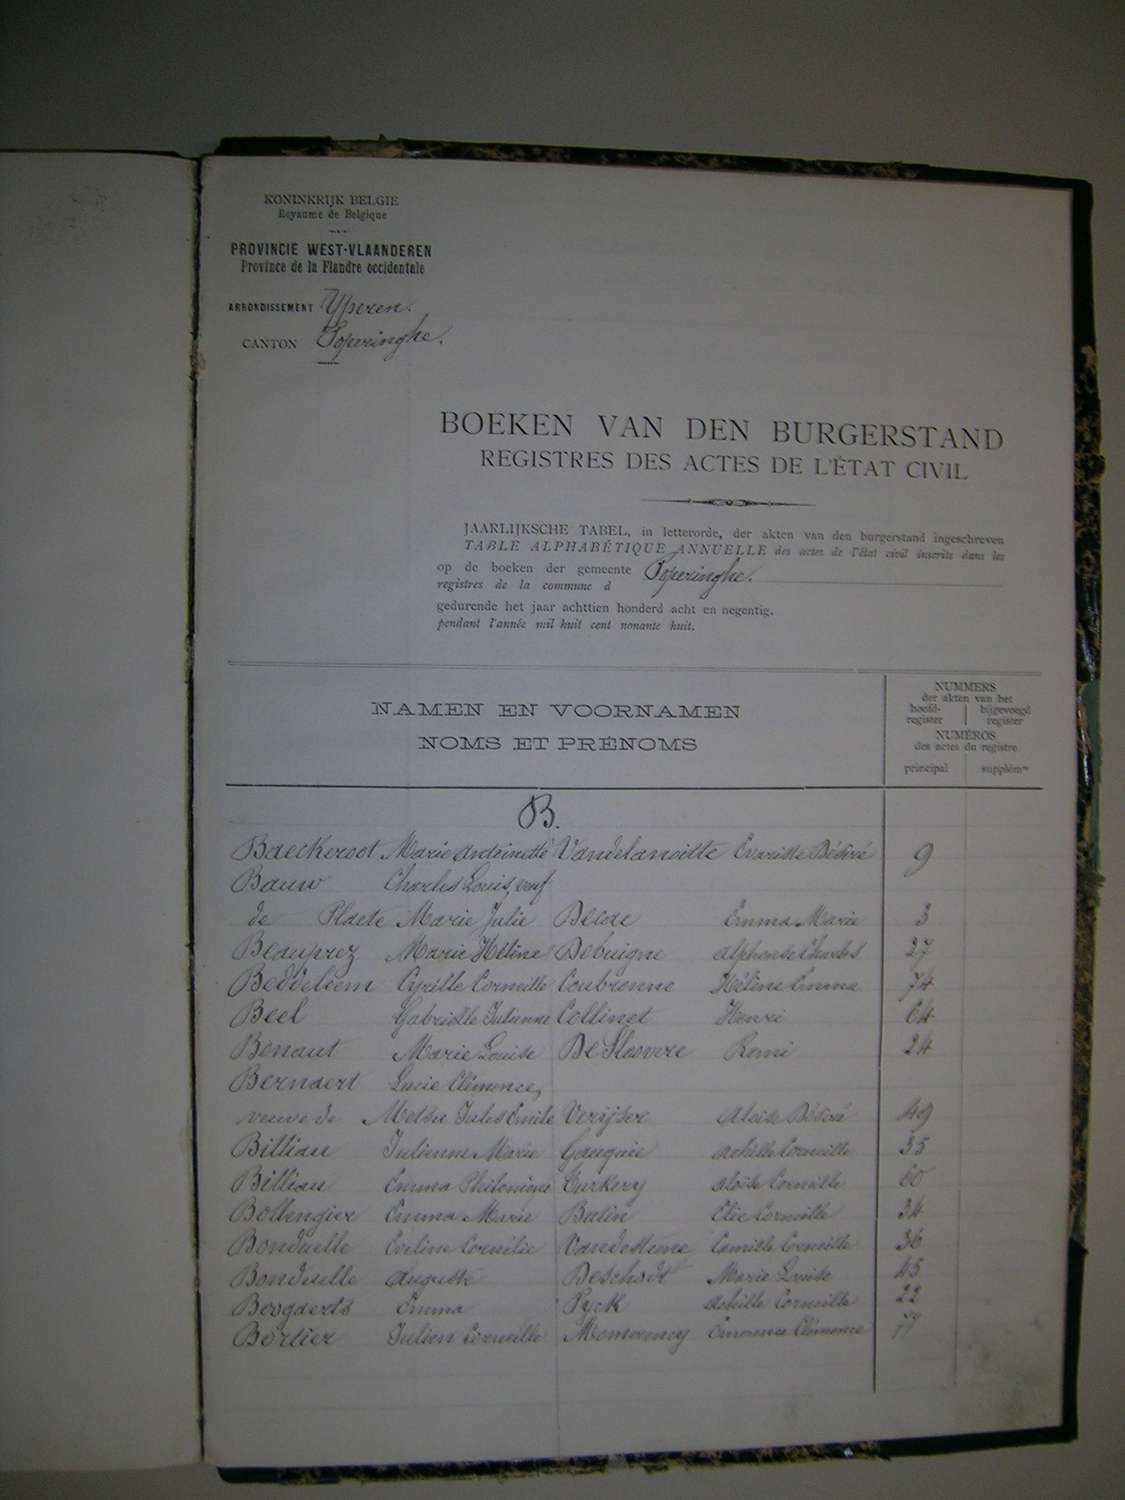 KONINKRIJK BELGIE
Royaume de Belgique
PROVINCIE WEST-VLAANDEREN
Province de la Flandre occidentale
ARRONDISSEMENT Yperen.
CANTON Poperinghe.
BOEKEN VAN DEN BURGERSTAND
REGISTRES DES ACTES DE L'ÉTAT CIVIL
JAARLIJKSCHE TABEL, in letterorde, der akten van den burgerstand ingeschreven
TABLE ALPHABÉTIQUE ANNUELLE des actes de l'état civil inscrits dans les
op de boeken der gemeente Poperinghe.
registres de la commune d
gedurende het jaar achttien honderd acht en negentig.
pendant l'année mil huit cent nonante huit.
NAMEN EN VOORNAMEN
NOMS ET PRÉNOMS
NUMMERS
der akten van het
hoofd-register bijgevoegd register
NUMÉROS
des actes du registre
principal supplém.re
B.
Baeckeroot Marie Antoinette Vandelanoitte Evariste Désiré 9
Bauw Charles Louis, veuf
de Plaete Marie Julie Emma Marie 3
Beauprez Marie Hélène Debuigne Alphonse Charles 27
Beddeleem Cyrille Corneille Coubronne Hélène Emma 74
Beel Gabrielle Julienne Collinet Henri 64
Benaut Marie Louise De Sloovere Remi 24
Bernaert Lucie Clémence,
veuve de Jules Emile Aloïse Désiré 49
Billiau Julienne Marie Gouquie Achille Corneille 35
Billiau Emma Philomène Aloïse Corneille 60
Bollengier Emma Marie Butin Elie Corneille 34
Bonduelle Eveline Cornélie Camille Corneille 36
Bonduelle Auguste Deschodt Marie Louise 45
Boogaerts Emma Pyck Achille Corneille 22
Bortier Julien Corneille Clémence 77